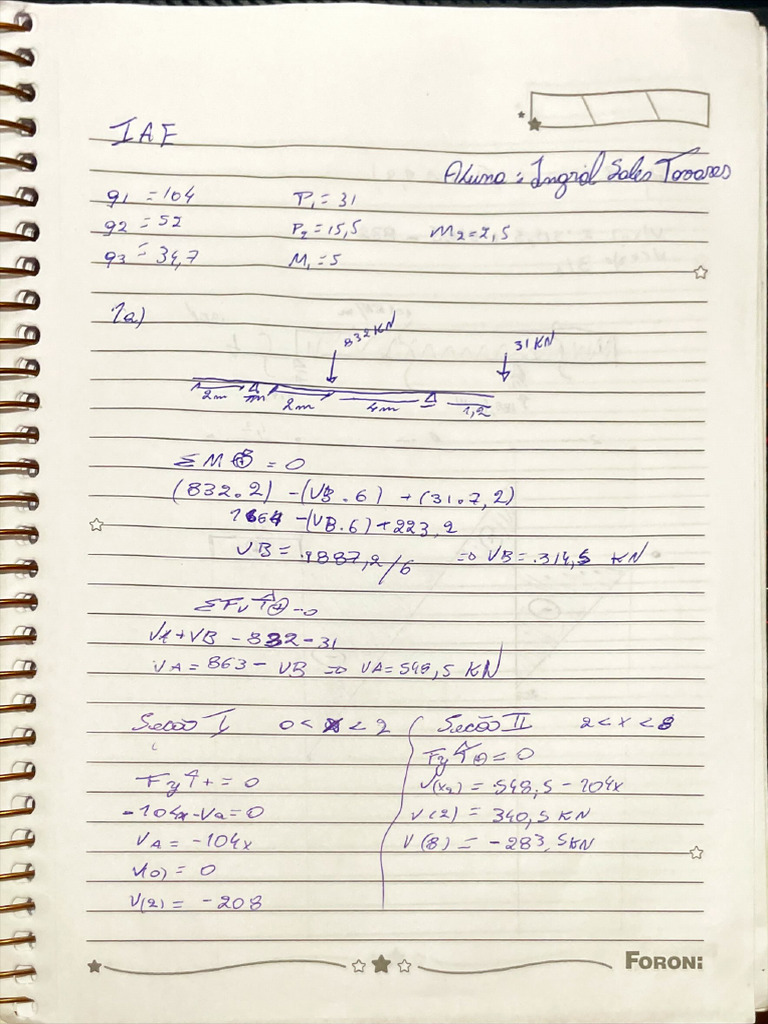 IAE
Aluna: Ingrid Sales Tavares
q1 = 104 P1 = 31
q2 = 52 P2 = 15,5 M2=2,5
q3 = 34,7 M1 = 5
1a)
832KN 31 KN
2m 2m 4m 1,2
ΣM ⊕ = 0
(832.2) -(VB.6) +(31.7,2)
1664 -(VB.6)+223,2
VB= 1887,2/6 => VB= 314,5 KN
ΣFv↑⊕=0
VA+VB - 832-31
VA= 863- VB => VA=548,5 KN
Secão I 0<x<2
Fy↑+=0
-104x-Va=0
VA = -104x
V(0) = 0
V(2) = -208
Secão II 2<x<8
Fy↑⊕=0
V(x2) = 548,5-104x
V(2) = 340,5 KN
V(8) = -283,5KN
FORONI